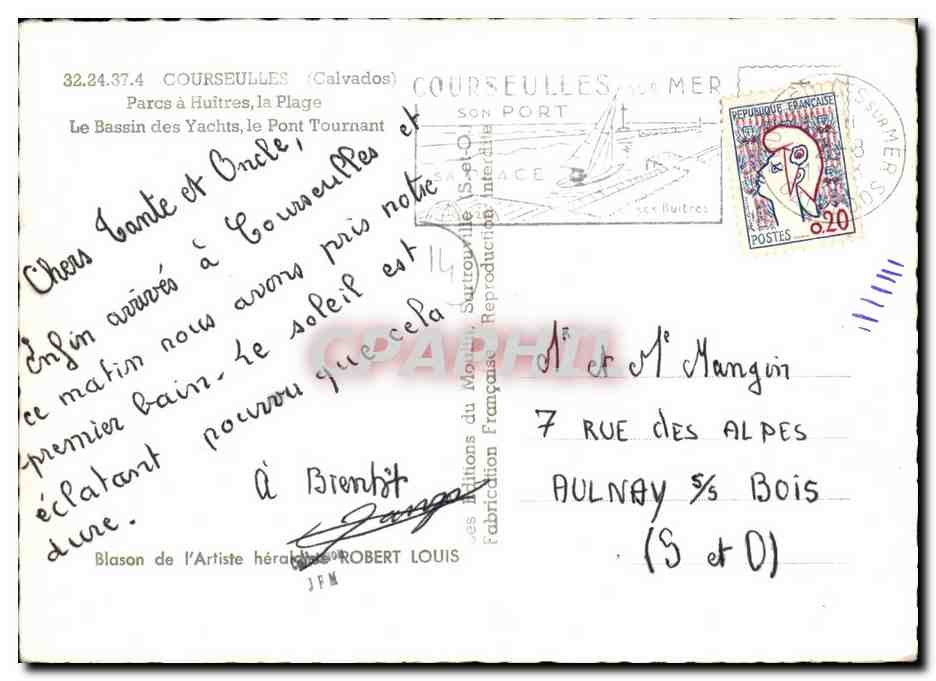 32.24.37.4 COURSEULLES (Calvados)
Parcs à Huîtres, la Plage
Le Bassin des Yachts, le Pont Tournant
Chers Tante et Oncle,
Enfin arrivés à Courseulles et
ce matin nous avons pris notre
premier bain. Le soleil est
éclatant pourvu que cela
dure.
à Bientôt
Blason de l'Artiste ROBERT LOUIS
JFM
Les Editions du Moulin, Sartrouville (S.-et-O.)
Fabrication Française. Reproduction interdite
COURSEULLES sur MER
SON PORT
SA PLAGE
ses Huîtres
14
REPUBLIQUE FRANÇAISE
0.20
POSTES
S/MER
CPAPHIL
Mr et Me Mangin
7 RUE des ALPES
AULNAY s/s BOIS
(S et O)